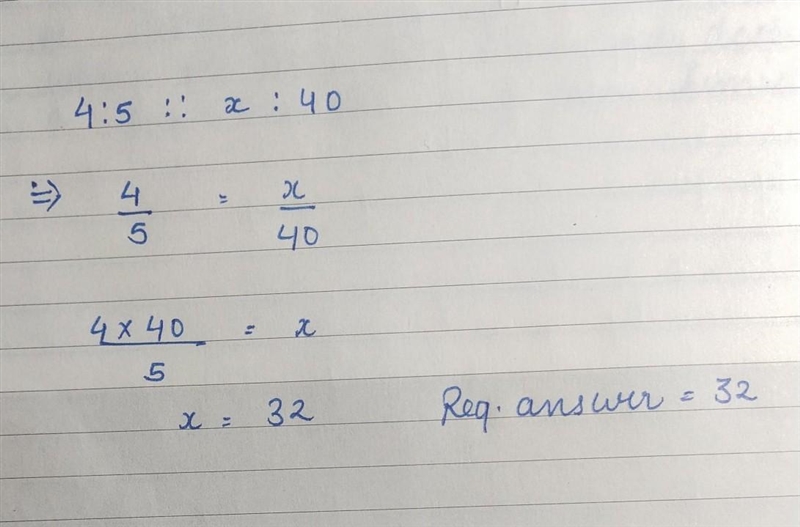 4:5 :: x : 40
⇒ 4/5 = x/40
4 × 40/5 = x
x = 32
Req. answer = 32